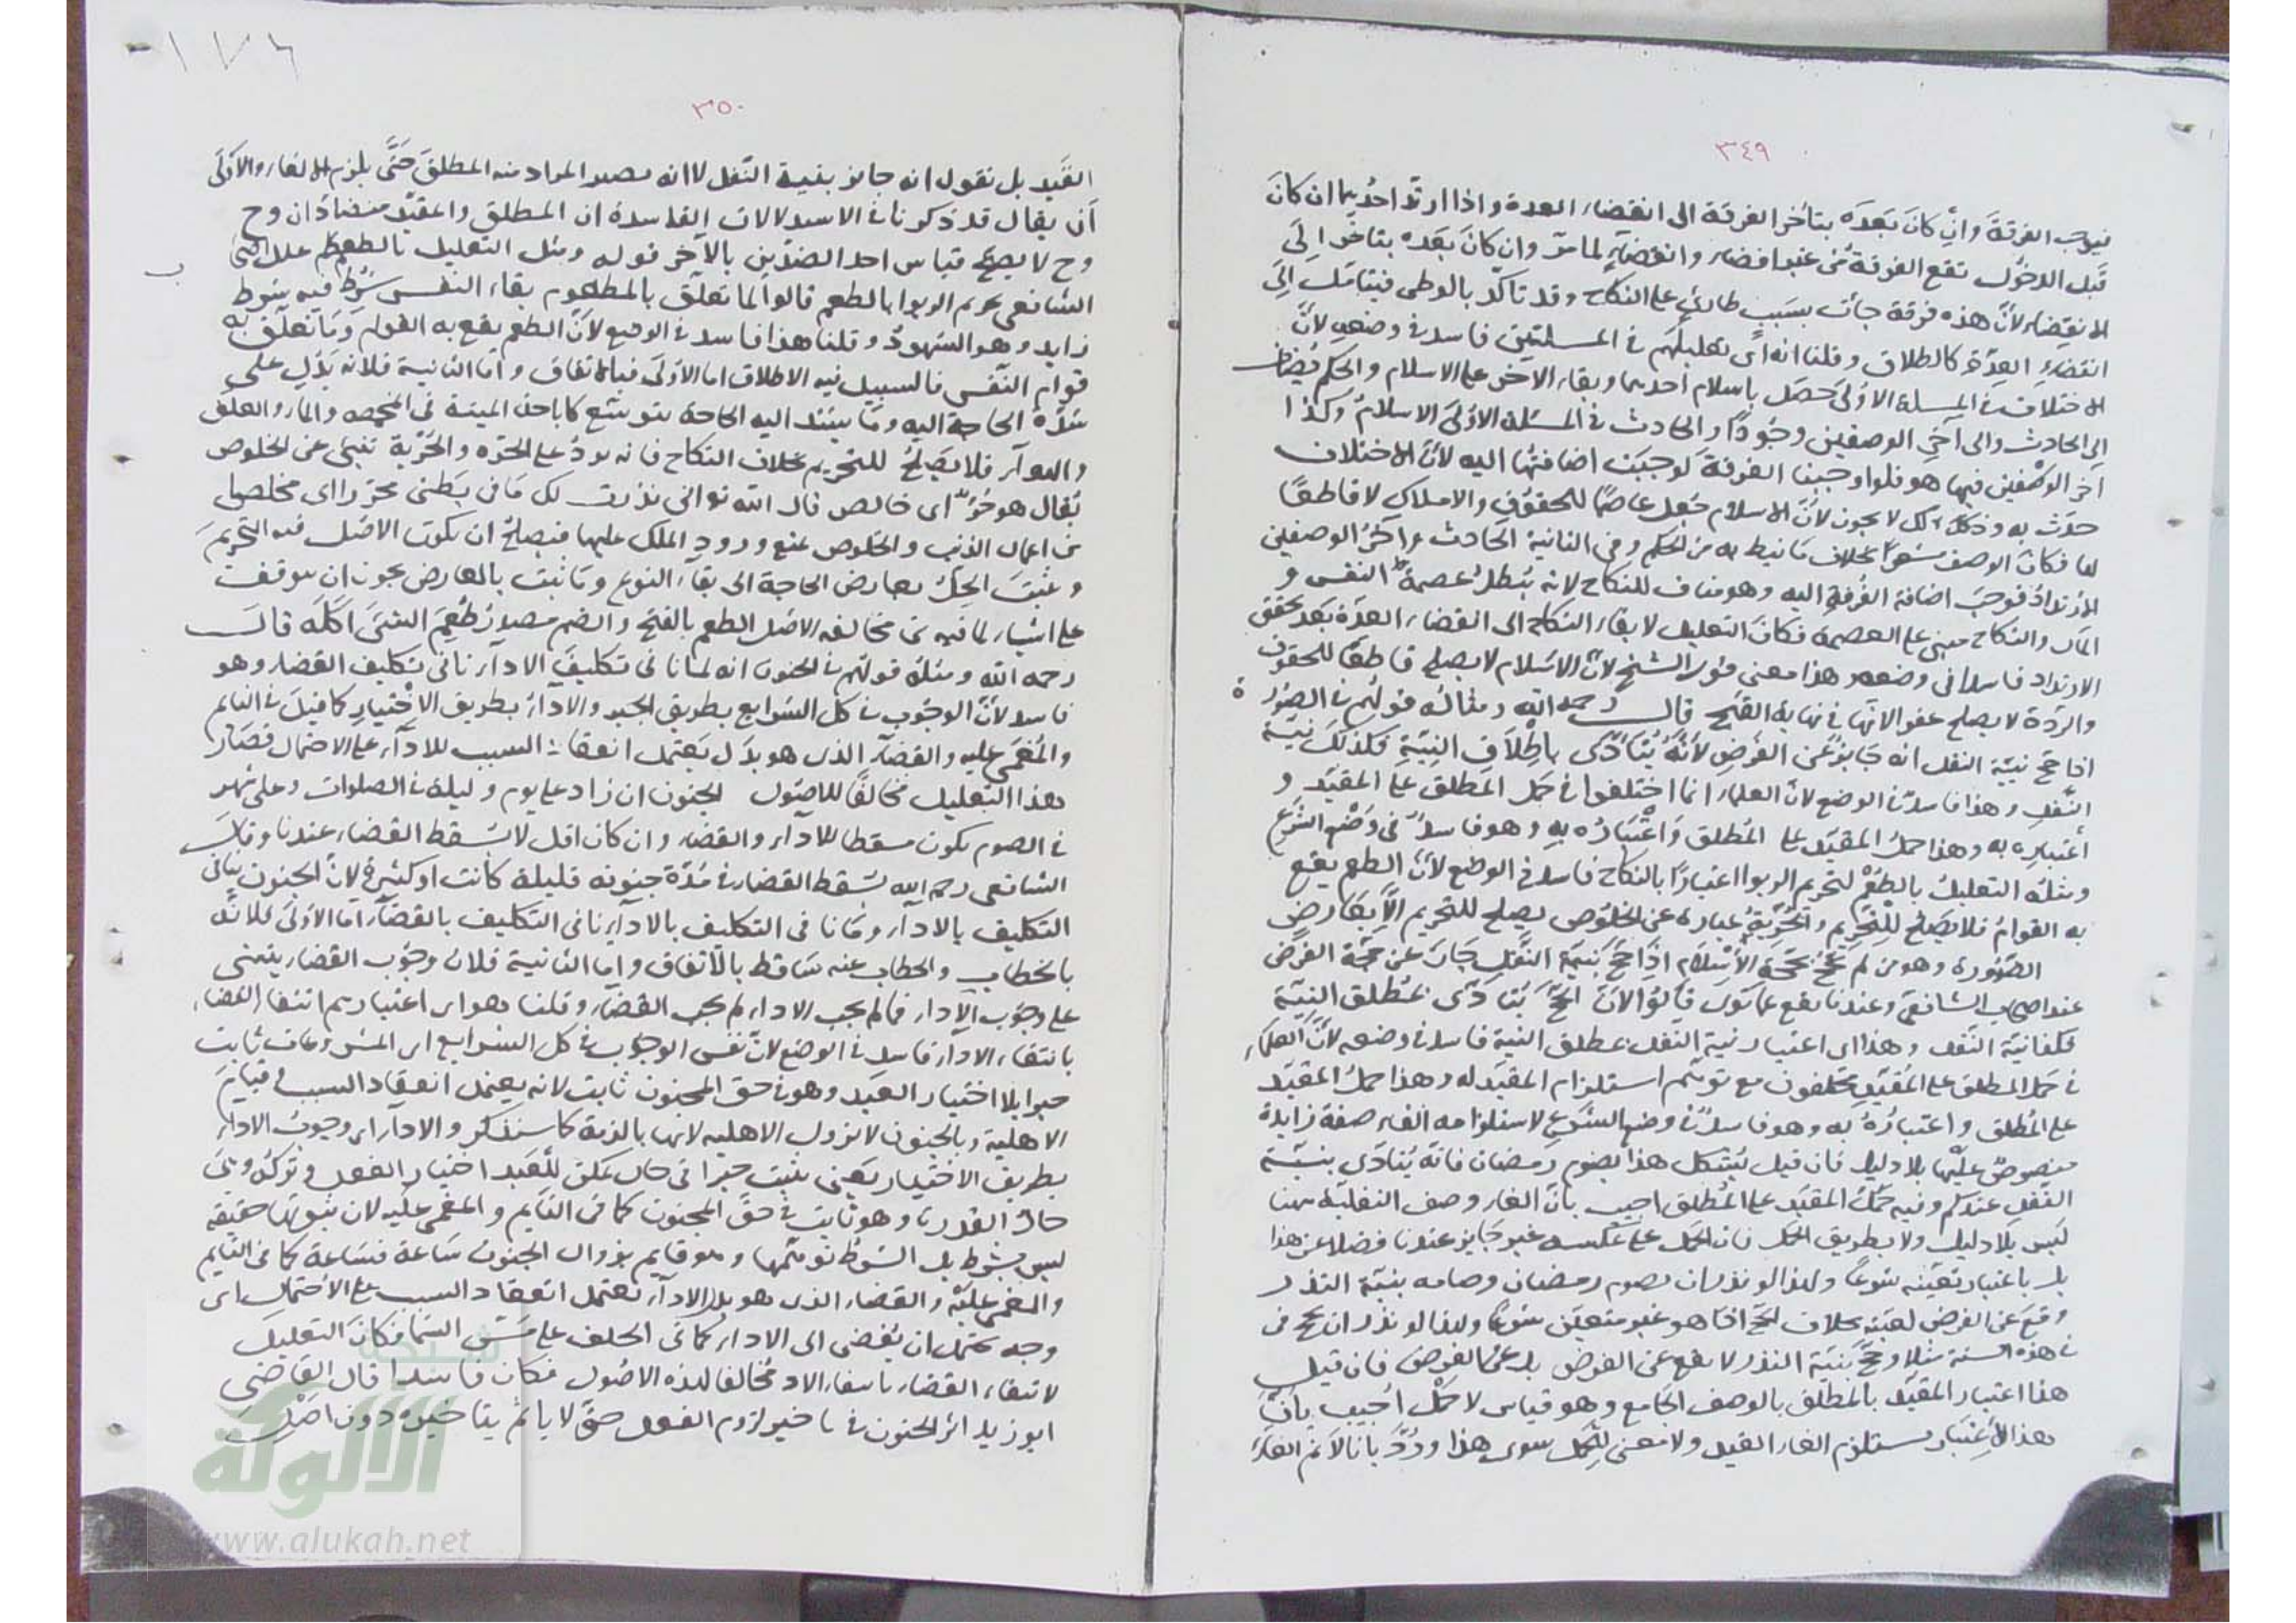 ٣٤٩
فيوجب الفرقة وان كان بعده يتاخر الفرقة الى انقضاء العدة واذا ارتد احدهما ان كان
قبل الدخول تقع الفرقة من غير قضاء وانقضاء لما مر وان كان بعده يتاخر الى
الانقضاء لان هذه فرقة جات بسبب طارئ على النكاح وقد تاكد بالوطى فيتاخر الى
انقضاء العدة كالطلاق وقلنا انه اى تعليلهم فى المسئلتين فاسد فى وضعه لان
الاختلاف فى المسلة الاولى حصل باسلام احدهما وبقاء الاخر على الاسلام والحكم يضاف
الى الحادث والى آخر الوصفين وجودا والحادث فى المسئلة الاولى الاسلام وكذا
آخر الوصفين فيها هو فلو اوجبنا الفرقة لوجبت اضافتها اليه لان الاختلاف
حدث به وذلك لا يجوز لان الاسلام جعل عاصما للحقوق والاملاك لا قاطعا
لها فكان الوصف بخلاف ما نيط به من الحكم وفى الثانية الحادث وآخر الوصفين
الارتداد فوجب اضافة الفرقة اليه وهو مناف للنكاح لانه يبطل عصمة النفس و
المال والنكاح مبنى على العصمة فكان التعليل لابقاء النكاح الى انقضاء العدة بعد تحقق
الارتداد فاسدا فى وضعه وهذا معنى قول الشيخ لان الاسلام لا يصلح قاطعا للحقوق
والردة لا يصلح عفوا لانها فى نهاية القبح قال رحمه الله ومثاله قولهم فى الصرورة
اذا حج نية النفل انه جايز عن الفرض لانه يتادى باطلاق النية فكذلك نية
النفل وهذا فاسد فى الوضع لان العلماء انما اختلفوا فى حمل المطلق على المقيد و
اعتباره به وهذا حمل المقيد على المطلق واعتباره به وهو فاسد فى وضع الشرع
ومثله التعليل بالطعم لتحريم الربوا اعتبارا بالنكاح فاسد فى الوضع لان الطعم يقع
به القوام فلا يصلح للتحريم والحرية عبارة عن الخلوص يصلح للتحريم الا بعارض
الصرورة وهو من لم يحج حجة الاسلام اذا حج بنية النفل جاز عن حجة الفرض
عند اصحاب الشافعى وعندنا يقع عما نوى قالوا لان الحج يتادى بمطلق النية
فكذا نية النفل وهذا اى اعتبار نية النفل بمطلق النية فاسد فى وضعه لان العلماء
فى حمل المطلق على المقيد مختلفون مع توهم استلزام المقيد له وهذا حمل المقيد
على المطلق واعتباره به وهو فاسد فى وضع الشرع لاستلزامه الغاء صفة زايدة
منصوص عليها بلا دليل فان قيل يشكل هذا بصوم رمضان فانه يتادى بنية
النفل عندكم وفيه حمل المقيد على المطلق اجيب بان الغاء وصف النفلية ههنا
ليس بلا دليل ولا بطريق الحمل فان الحمل على عكسه غير جايز عندنا فضلا عن هذا
بل باعتبار تعينه شرعا ولهذا لو نذر ان يصوم رمضان وصامه بنية النذر
وقع عن الفرض لعينه بخلاف الحج اذا هو غير متعين شرعا ولهذا لو نذر ان يحج فى
فى هذه السنة مثلا وحج بنية النذر لا يقع عن الفرض بل عن الفرض فان قيل
هذا اعتبار المقيد بالمطلق بالوصف الجامع وهو قياس لا حمل اجيب بان
هذا الاعتبار يستلزم الغاء القيد ولا معنى للحمل سوى هذا ورد بانا لا نم الغاء
١٧٦
٣٥٠
القيد بل نقول انه جايز بنية النفل لا انه يصير المراد منه المطلق حتى يلزم الالغاء والاولى
ان يقال قد ذكرنا فى الاستدلالات الفاسدة ان المطلق والمقيد متضادان وح
وح لا يصح قياس احد الضدين بالآخر قوله ومثل التعليل بالطعم علل
الشافعى تحريم الربوا بالطعم قالوا لما تعلق بالمطعوم بقاء النفس شرط فيه شرط
زايد وهو الشهود وقلنا هذا فاسد فى الوضع لان الطعم يقع به القوام وما تعلق به
قوام النفس فالسبيل فيه الاطلاق اما الاولى فبالاتفاق واما الثانية فلانه يدل على
شدة الحاجة اليه وما يشتد اليه الحاجة يتوسع كاباحة الميتة فى المخمصة والماء والعلف
والهوآ فلا يصلح للتحريم بخلاف النكاح فانه يرد على الحرة والحرية تنبئ عن الخلوص
يقال هو حر اى خالص قال الله تع انى نذرت لك ما فى بطنى محررا اى مخلصا
من اعمال الدنيا والخلوص يمنع ورود الملك عليها فيصلح ان يكون الاصل فيه التحريم
ويثبت الحل بعارض الحاجة الى بقاء النوع وما ثبت بالعارض يجوز ان يتوقف
على اشياء لما فيه من مخالفة الاصل الطعم بالفتح والضم مصدر طعم الشئ اكله قال
رحمه الله ومثله قولهم فى الجنون انه لما نافى تكليف الادآء نافى تكليف القضاء وهو
فاسد لان الوجوب فى كل الشرايع بطريق الجبر والاداء بطريق الاختيار كما قيل فى النايم
والمغمى عليه والقضاء الذى هو بدل يعتمد انعقاد السبب للادآء على الاحتمال فصار
هذا التعليل مخالفا للاصول الجنون ان زاد على يوم وليلة فى الصلوات وعلى شهر
فى الصوم يكون مسقطا للادآء والقضاء وان كان اقل لا يسقط القضاء عندنا وقال
الشافعى رحمه الله يسقط القضاء فى مدة جنونه قليلة كانت او كثيرة لان الجنون ينافى
التكليف بالادآء وما نافى التكليف بالادآء نافى التكليف بالقضاء اما الاولى فلانه
بالخطاب والخطاب عنه ساقط بالاتفاق واما الثانية فلان وجوب القضاء يبتنى
على وجوب الاداء فما لم يجب الاداء لم يجب القضاء وقلنا هو اى اعتبارهم انتفاء القضاء
بانتفاء الاداء فاسد فى الوضع لان نفس الوجوب فى كل الشرايع اى المشروعات ثابت
جبرا بلا اختيار العبد وهو فى حق المجنون ثابت لانه يعتمد انعقاد السبب وقيام
الاهلية وبالجنون لا تزول الاهلية لانها بالذمة كما سنذكر والادآء اى وجوب الاداء
بطريق الاختيار يعنى يثبت جبرا فى حال يمكن للعبد اختيار الفعل وتركه وهى
حال القدرة وهو ثابت فى حق المجنون كما فى النايم والمغمى عليه لان ثبوتها حقيقة
ليس بشرط بل الشرط توهمها وهو قايم بزوال الجنون ساعة فساعة كما فى النايم
والمغمى عليه والقضاء الذى هو بدل الادآء يعتمد انعقاد السبب على الاحتمال اى
وجه يحتمل ان يفضى الى الاداء كما فى الحلف على مس السما فكان التعليل
لانتفاء القضاء بانتفاء الاد مخالفا لهذه الاصول فكان فاسدا قال القاضى
ابو زيد اثر الجنون فى تاخير لزوم الفعل حتى لا ياثم بتاخيره دون اصل
شبكة
الألوكة
www.alukah.net